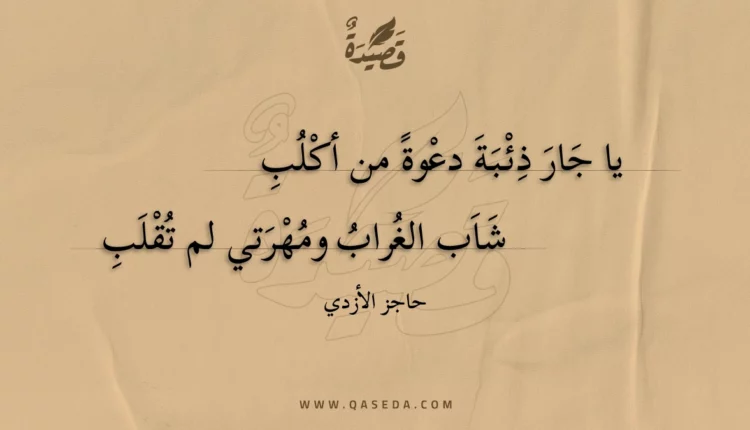 قَصِيْدَةٌ
يا جَارَ ذِئْبَةَ دعْوةً من أكْلُبِ
شَاَب الغُرابُ ومُهْرَتي لم تُقْلَبِ
حاجز الأزدي
WWW.QASEDA.COM